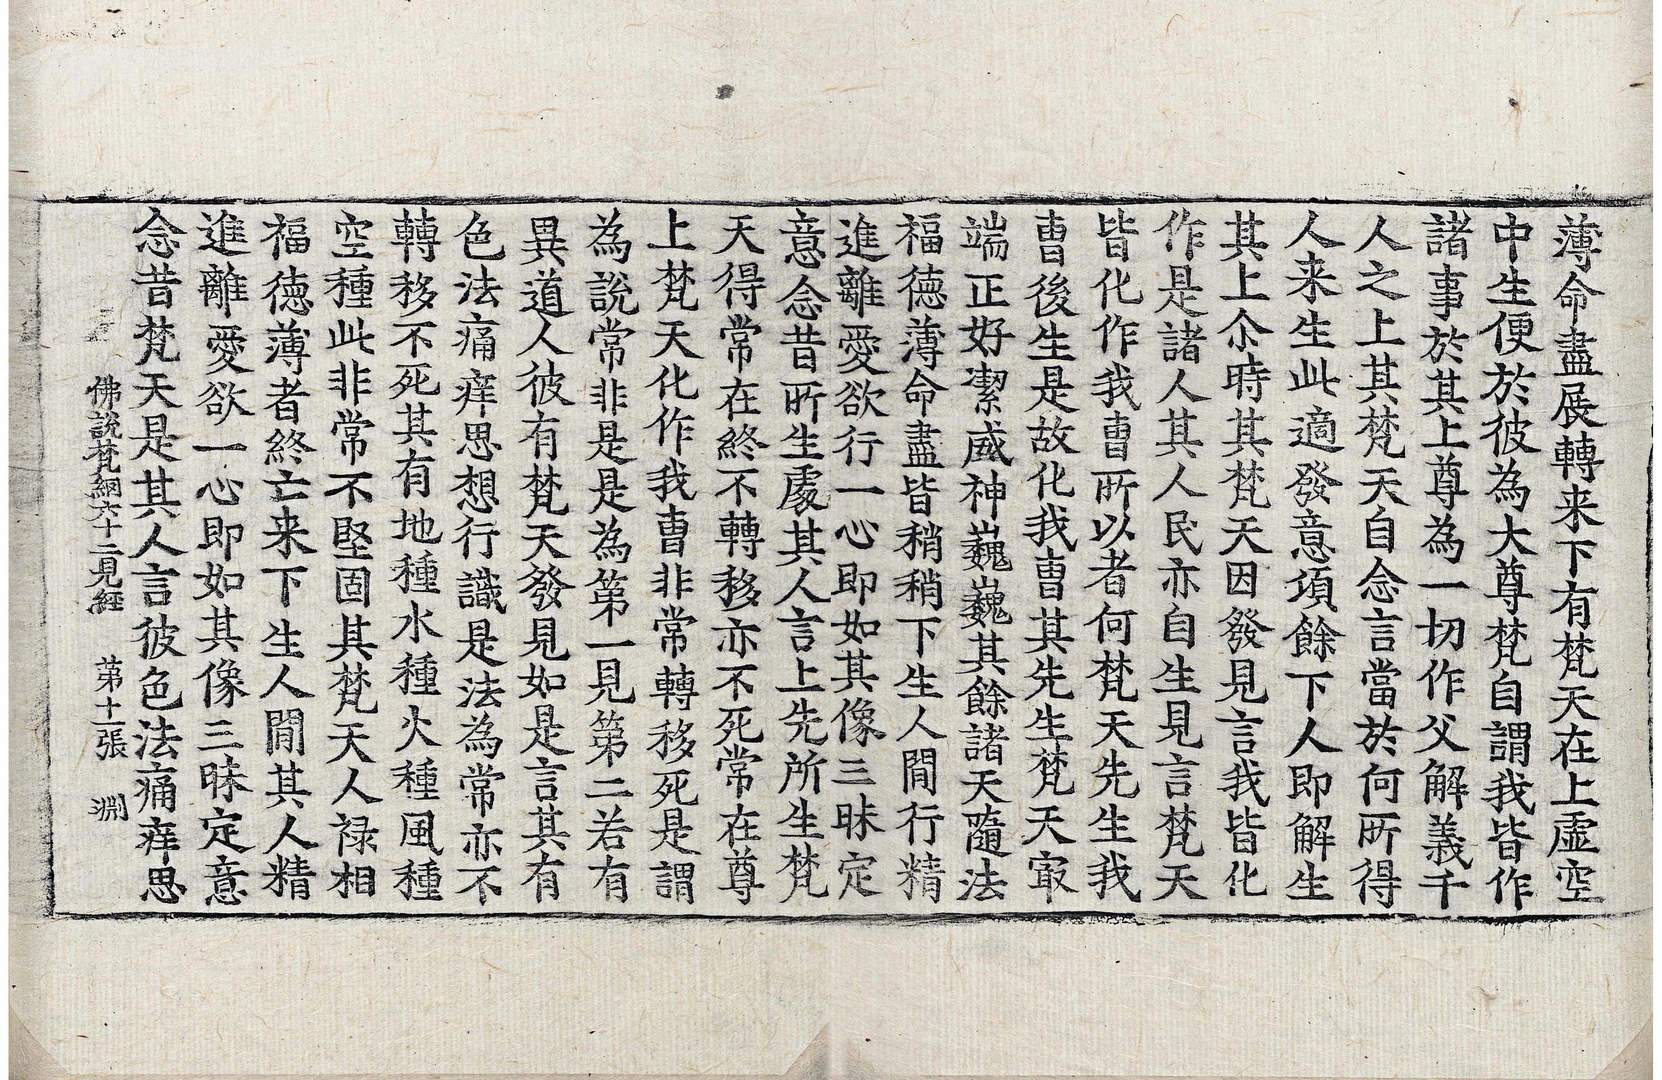 薄命盡展轉来下有梵天在上虛空
中生便於彼為大尊梵自謂我皆作
諸事於其上尊為一切作父解義千
人之上其梵天自念言當於何所得
人来生此適發意項餘下人即解生
其上尒時其梵天因發見言我皆化
作是諸人其人民亦自生見言梵天
皆化作我曺所以者何梵天先生我
曺後生是故化我曺其先生梵天冣
端正好潔威神巍巍其餘諸天隨法
福德薄命盡皆稍稍下生人間行精
進離愛欲行一心即如其像三昧定
意念昔所生處其人言上先所生梵
天得常在終不轉移亦不死常在尊
上梵天化作我曺非常轉移死是謂
為說常非是是為第一見第二若有
異道人彼有梵天發見如是言其有
色法痛痒思想行識是法為常亦不
轉移不死其有地種水種火種風種
空種此非常不堅固其梵天人祿相
福德薄者終亡来下生人間其人精
進離愛欲一心即如其像三昧定意
念昔梵天是其人言彼色法痛痒思
佛說梵網六十二見經 第十一張 淵